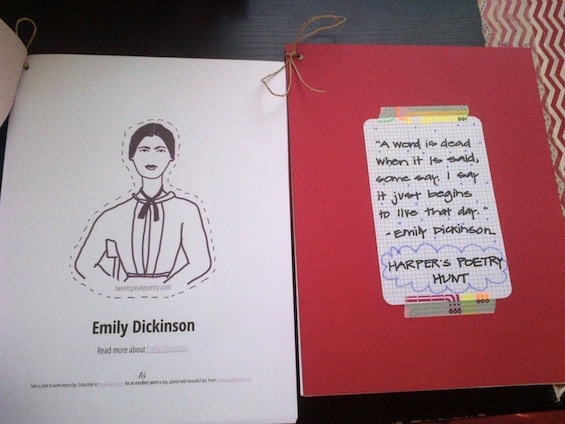 tweetspeakpoetry.com
Emily Dickinson
Read more about Emily Dickinson
ts
Take a poet to work every day. Subscribe to Every Day Poems for an excellent poem a day, paired with beautiful art. From
"A word is dead
when it is said,
some say. I say
it just begins
to live that day."
-Emily Dickinson
HARPER'S POETRY
HUNT